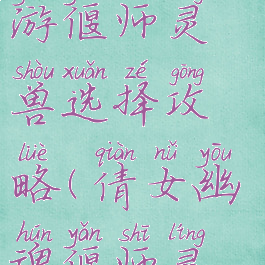 游偃师灵
shòu xuǎn zé gōng
兽选择攻
lüè qiàn nǚ yōu
略(倩女幽
hún yǎn shī líng
魂偃师灵